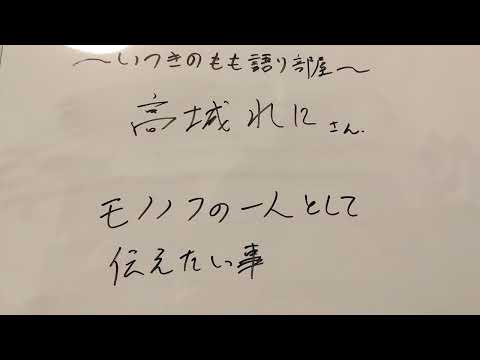 ～いつきのもも語り部屋～
高城れにさん.
モノノフの一人として
伝えたい事